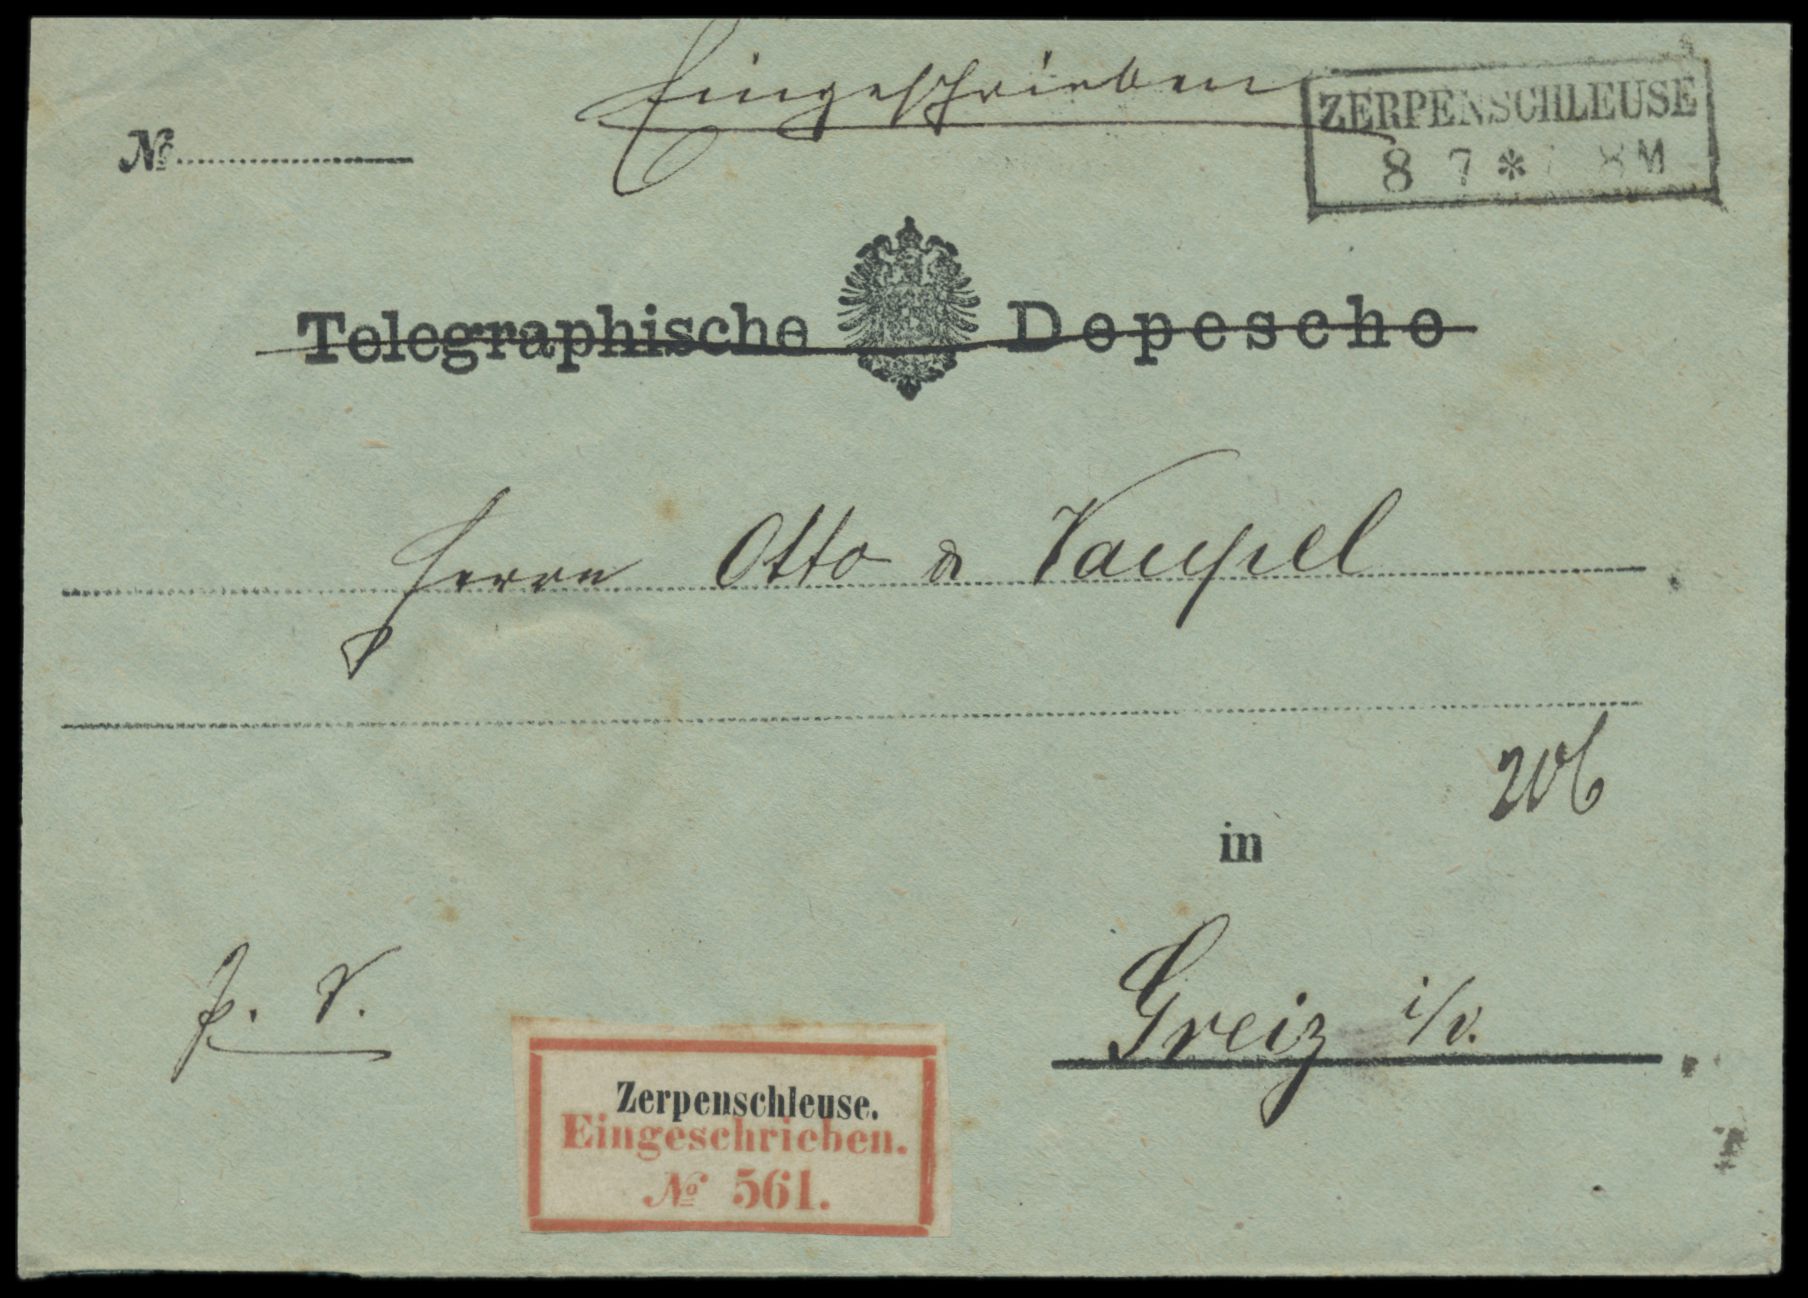 Eingeschrieben
ZERPENSCHLEUSE
8 7 * 8 M
No
Telegraphische Depesche
Herrn Otto & Vaupel
206
in
Greiz i/v.
Zerpenschleuse.
Eingeschrieben.
No 561.